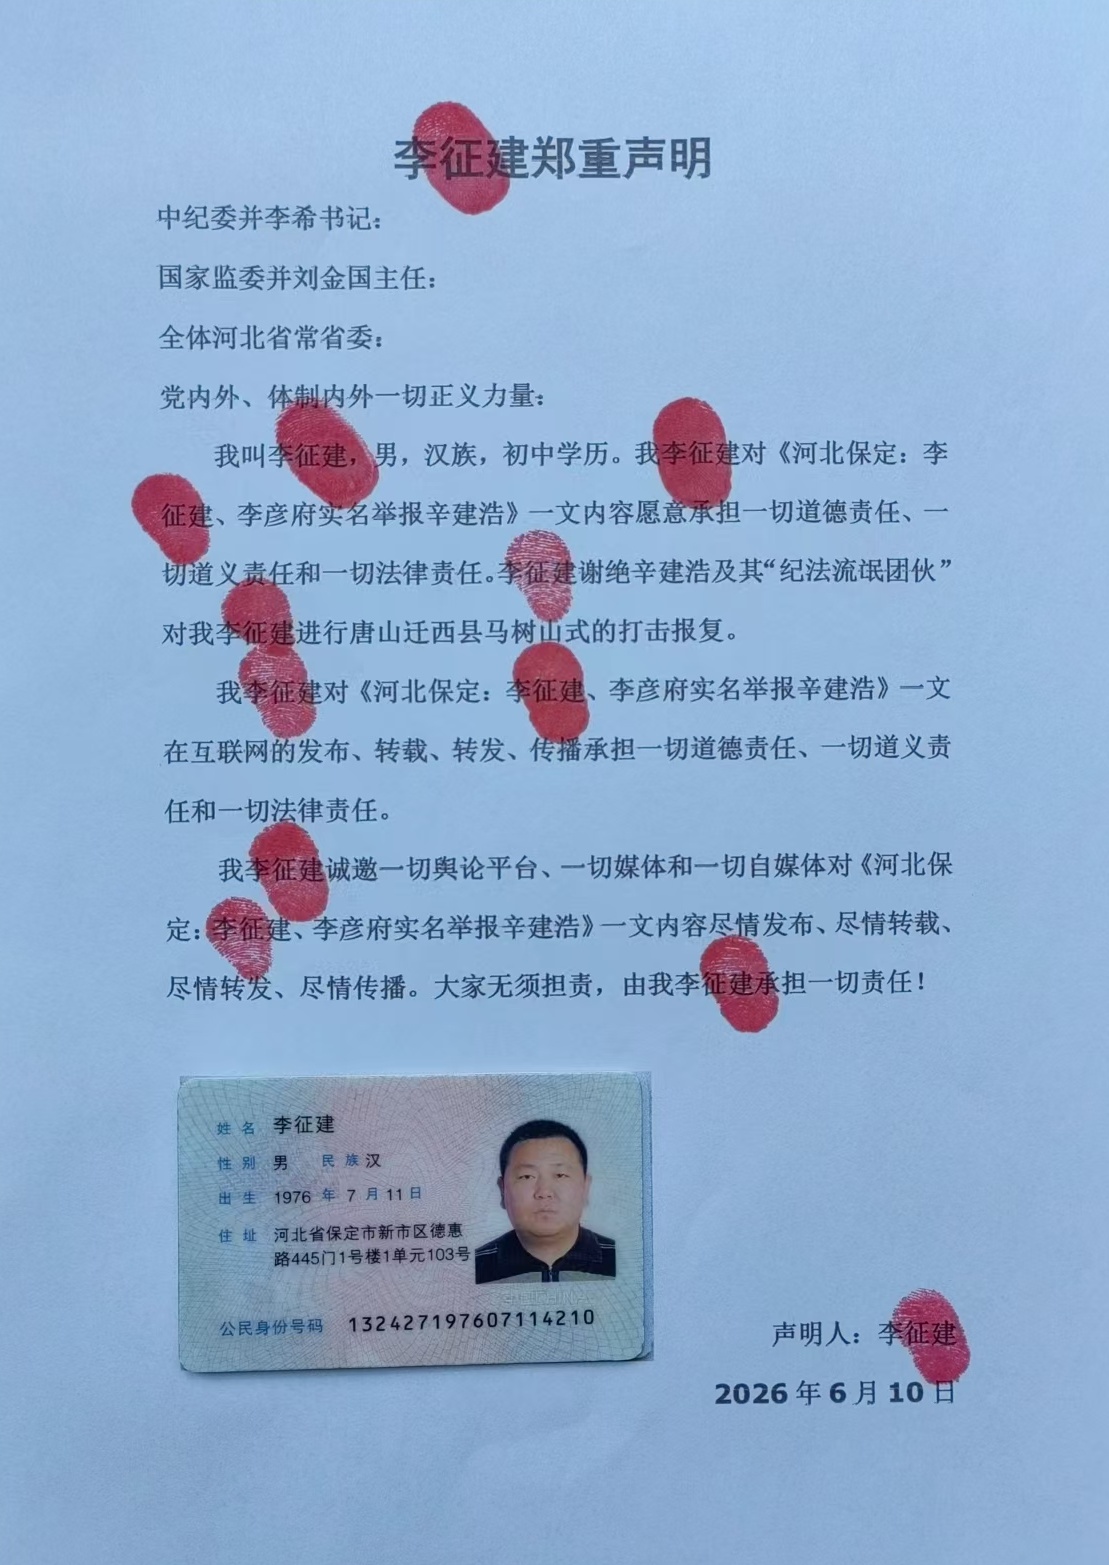 李征建郑重声明
中纪委并李希书记：
国家监委并刘金国主任：
全体河北省常省委：
党内外、体制内外一切正义力量：
我叫李征建，男，汉族，初中学历。我李征建对《河北保定：李
征建、李彦府实名举报辛建浩》一文内容愿意承担一切道德责任、一
切道义责任和一切法律责任。李征建谢绝辛建浩及其“纪法流氓团伙”
对我李征建进行唐山迁西县马树山式的打击报复。
我李征建对《河北保定：李征建、李彦府实名举报辛建浩》一文
在互联网的发布、转载、转发、传播承担一切道德责任、一切道义责
任和一切法律责任。
我李征建诚邀一切舆论平台、一切媒体和一切自媒体对《河北保
定：李征建、李彦府实名举报辛建浩》一文内容尽情发布、尽情转载、
尽情转发、尽情传播。大家无须担责，由我李征建承担一切责任！
姓名 李征建
性别 男 民族 汉
出生 1976 年 7 月 11 日
住址 河北省保定市新市区德惠
路445门1号楼1单元103号
公民身份号码 132427197607114210
声明人：李征建
2026 年 6 月 10 日